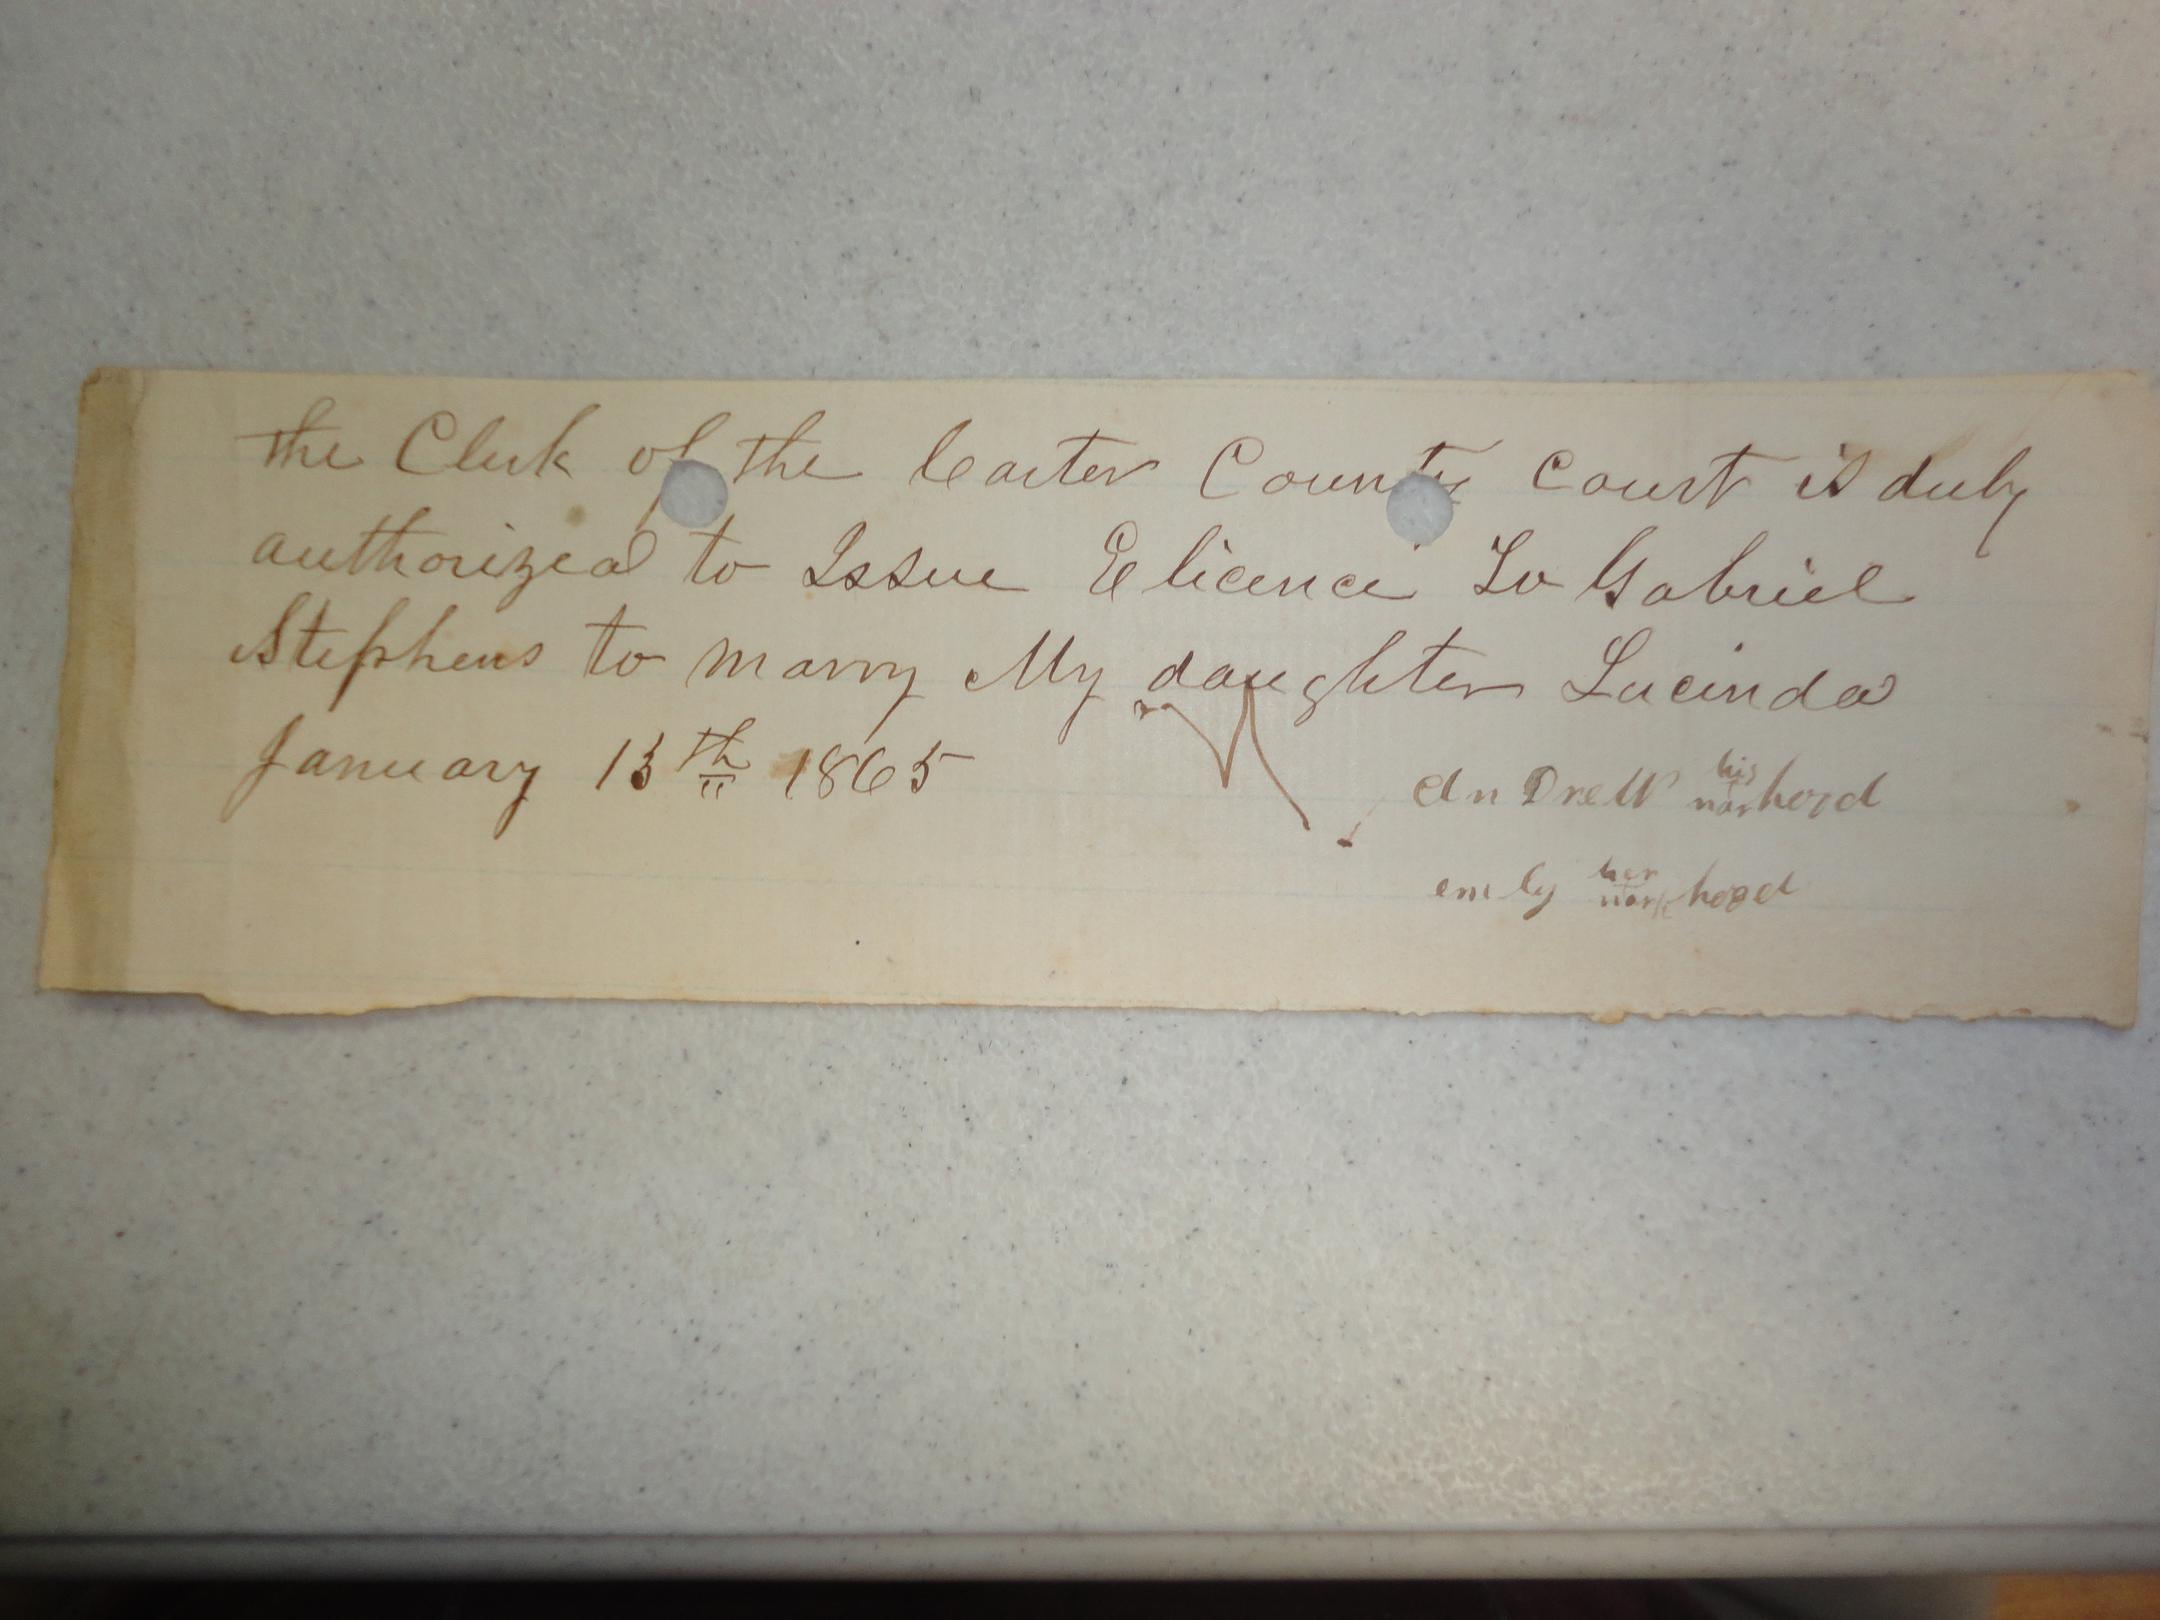 the Clerk of the Carter County Court is duly
authorized to Issue licence To Gabriel
Stephens to marry My daughter Lucinda
January 13th 1865
AnDrew his mark hood
emly her mark hood